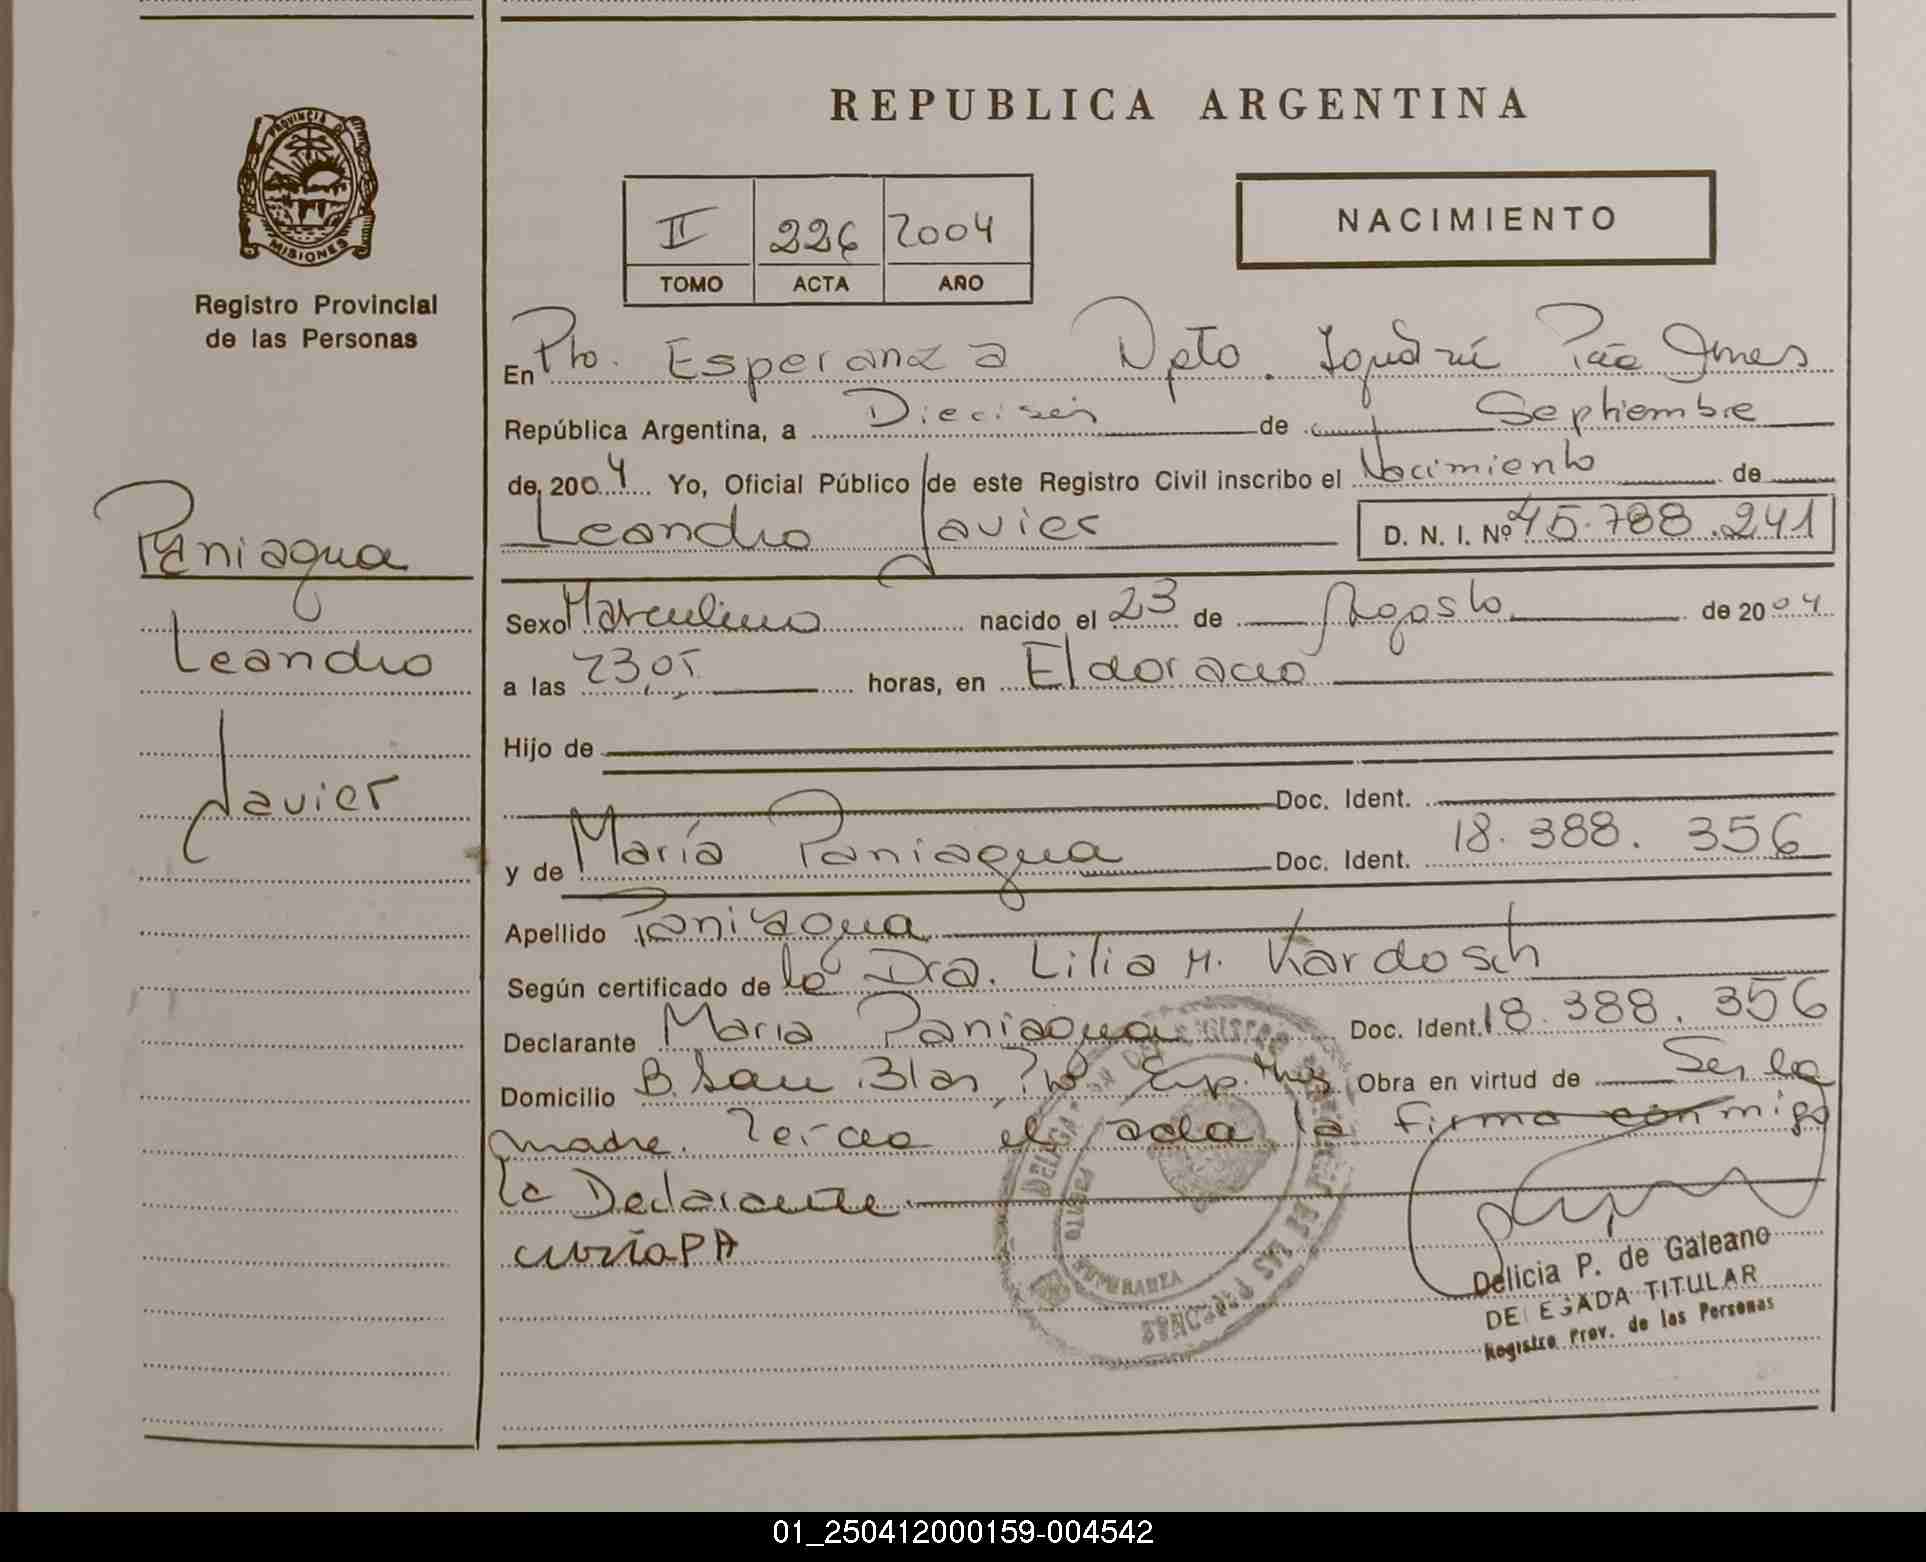 REPUBLICA ARGENTINA
PROVINCIA DE
MISIONES
Registro Provincial
de las Personas
II 226 2004
TOMO ACTA AÑO
NACIMIENTO
En Pto. Esperanza Dpto. Iguazú
República Argentina, a Dieciseis de Septiembre
de 2004 Yo, Oficial Público de este Registro Civil inscribo el Nacimiento de
Leandro Javier D. N. I. Nº 45.788.241
Paniagua
Leandro
Javier
Sexo Masculino nacido el 23 de Agosto de 2004
a las 23,05 horas, en Eldorado
Hijo de
Doc. Ident.
y de María Paniagua Doc. Ident. 18.388.356
Apellido Paniagua
Según certificado de la Dra. Lilia M. Kardosch
Declarante Maria Paniagua Doc. Ident. 18.388.356
Domicilio B. San Blas Pto Esp. Mnes Obra en virtud de Ser la
madre. Leida el acta la firma conmigo
la Declarante
Delicia P. de Galeano
DELEGADA TITULAR
Registro Prov. de las Personas
01_250412000159-004542